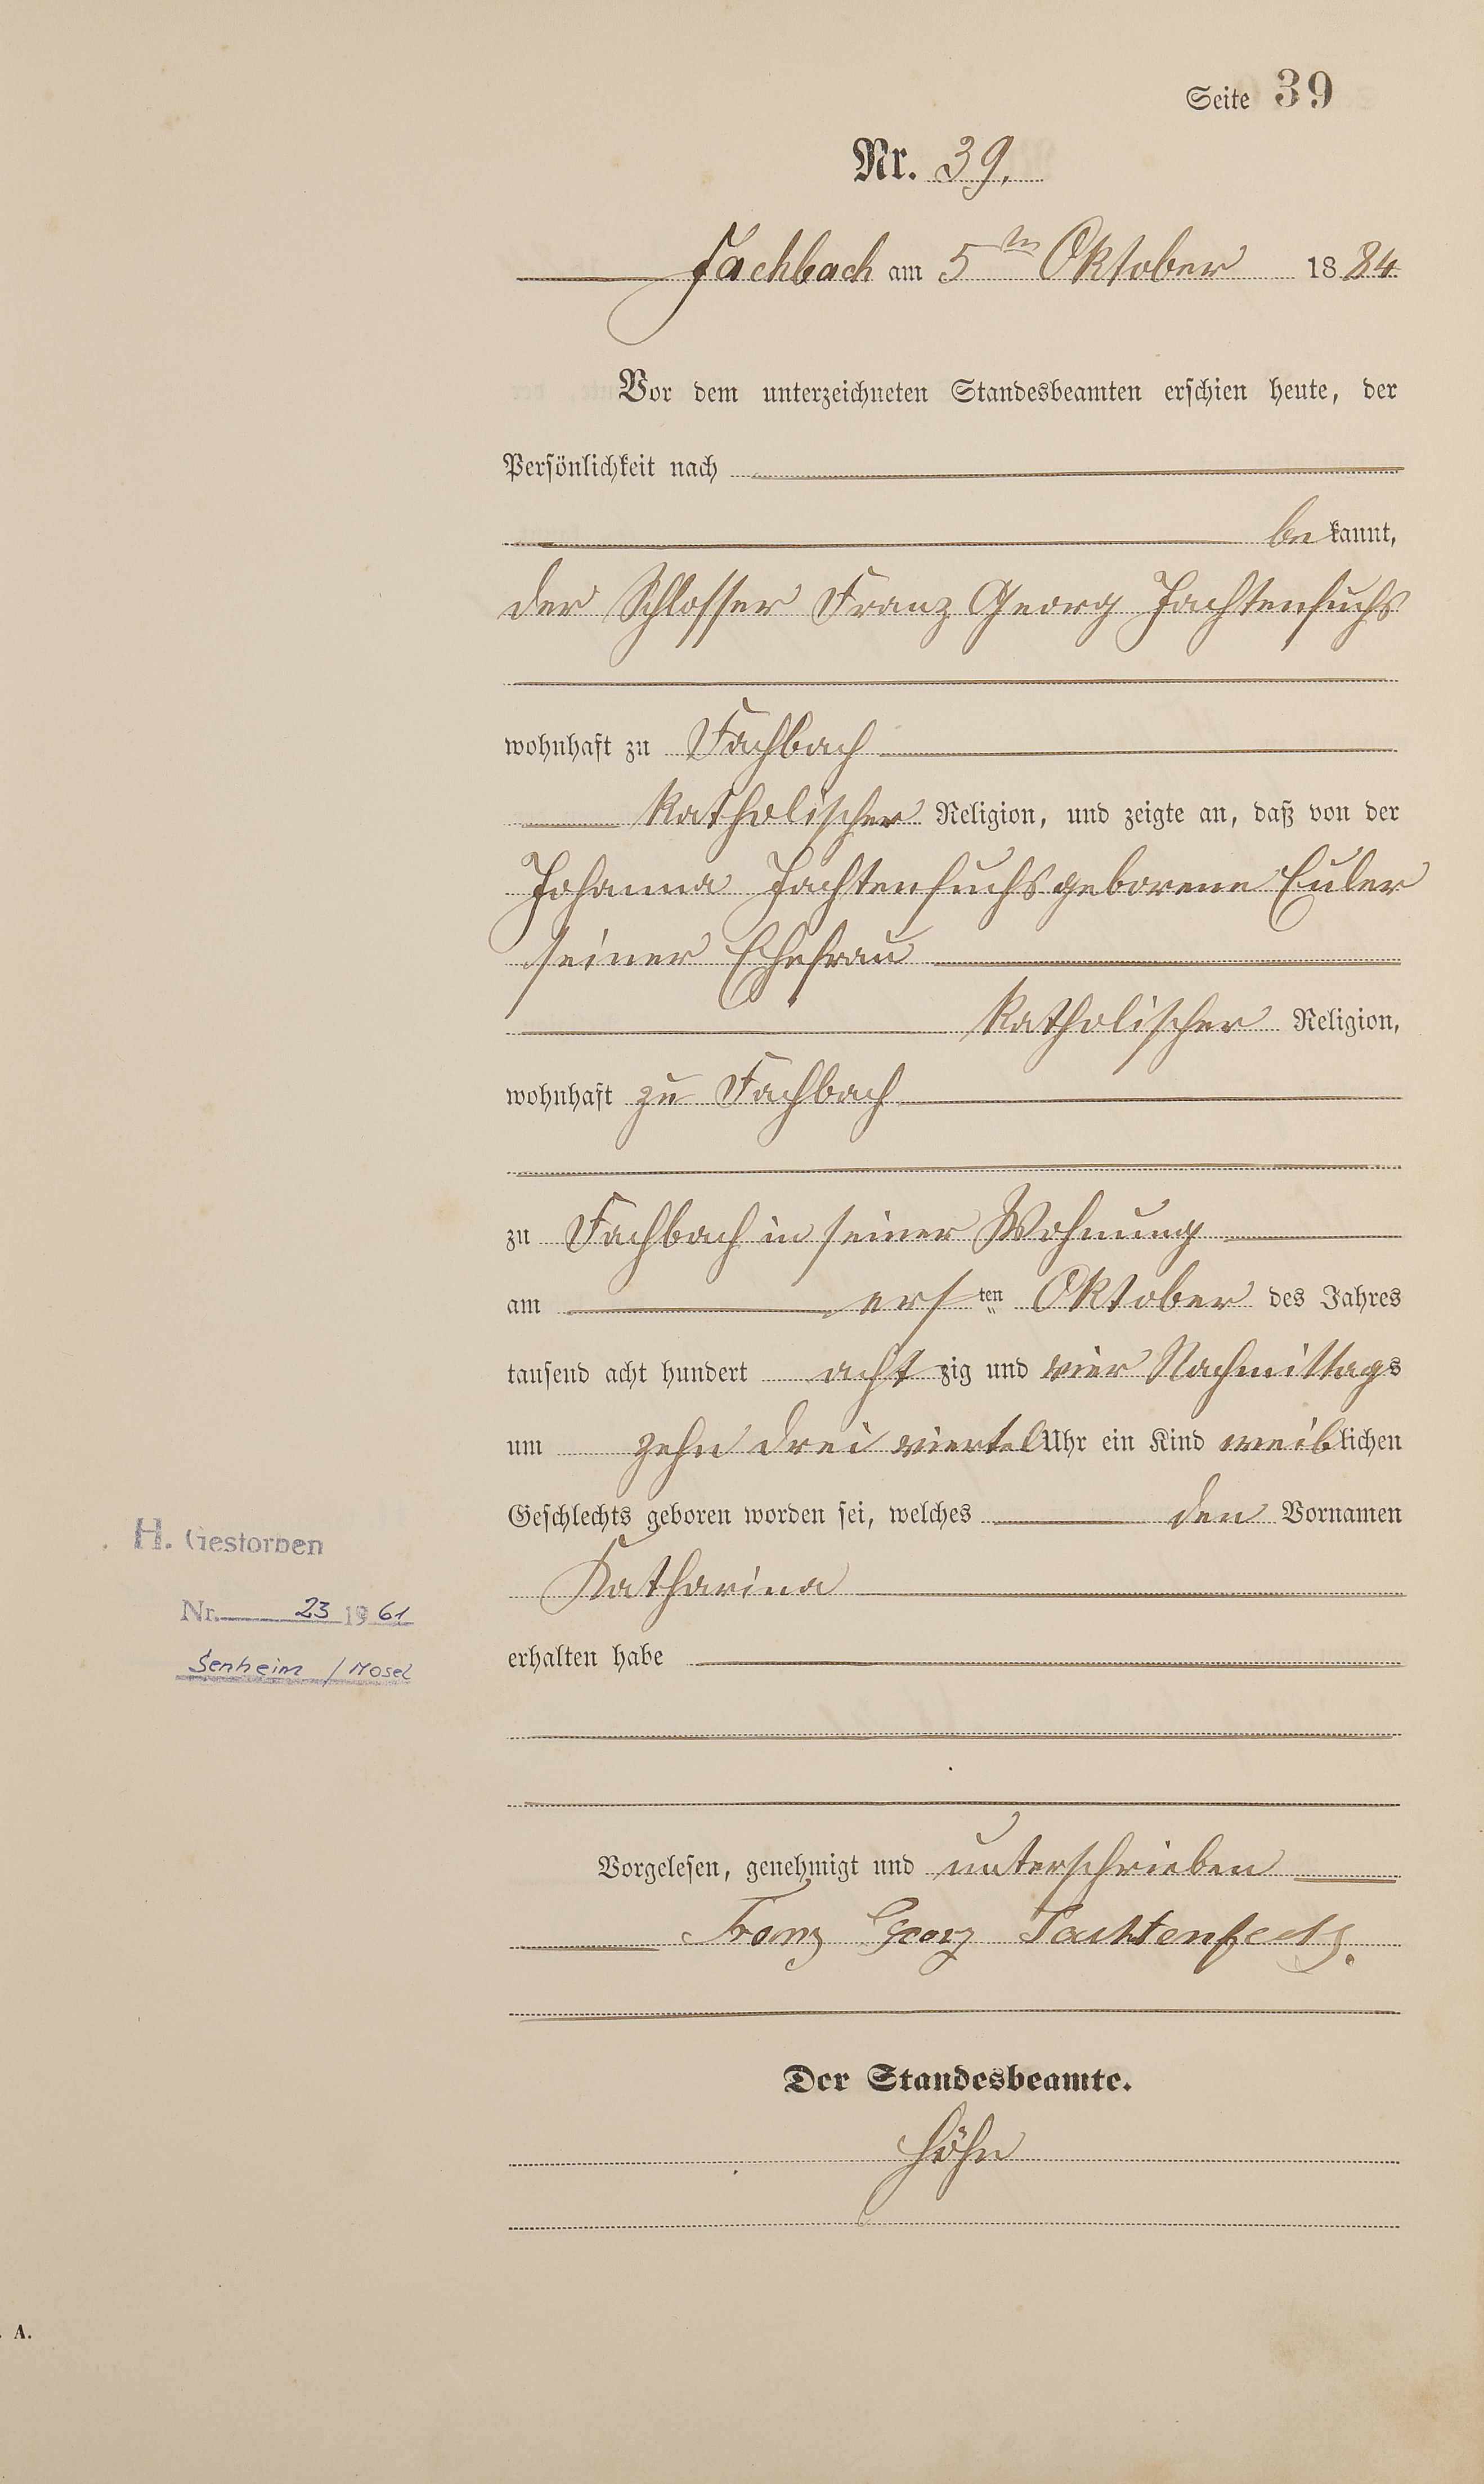 Seite 39
Nr. 39.
Fachbach am 5ten Oktober 1884
Vor dem unterzeichneten Standesbeamten erschien heute, der
Persönlichkeit nach
bekannt,
der Schlosser Franz Georg Jachtenfuchs
wohnhaft zu Fachbach
katholischer Religion, und zeigte an, daß von der
Johanna Jachtenfuchs geborene Euler
seiner Ehefrau
katholischer Religion,
wohnhaft zu Fachbach
zu Fachbach in seiner Wohnung
am ersten Oktober des Jahres
tausend acht hundert achtzig und vier Nachmittags
um zehn drei viertel Uhr ein Kind weiblichen
Geschlechts geboren worden sei, welches den Vornamen
H. Gestorben
Katharina
Nr. 23 1961
erhalten habe
Senheim / Mosel
Vorgelesen, genehmigt und unterschrieben
Franz Georg Jachtenfuchs.
Der Standesbeamte.
Höhn
A.